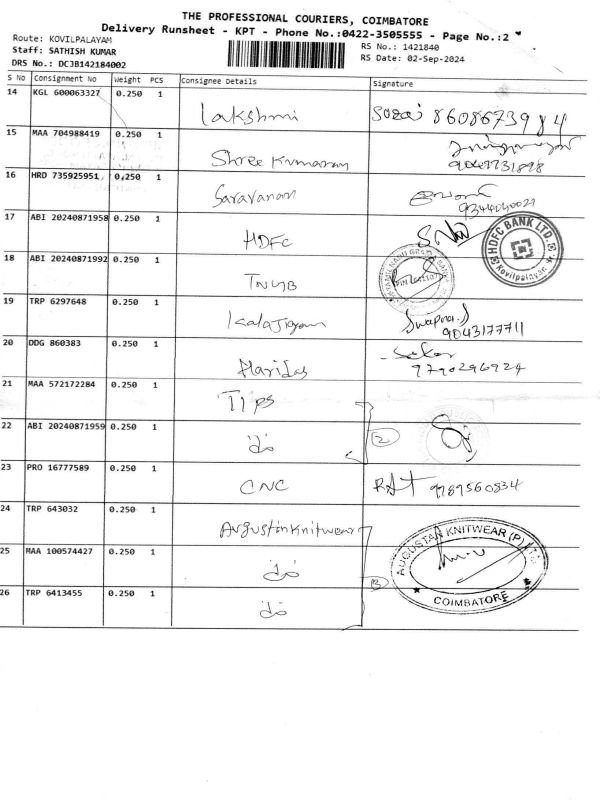 THE PROFESSIONAL COURIERS, COIMBATORE
Delivery Runsheet - KPT - Phone No.:0422-3505555 - Page No.:2
Route: KOVILPALAYAM
Staff: SATHISH KUMAR
DRS No.: DCJB142184002
RS No.: 1421840
RS Date: 02-Sep-2024
S No Consignment No Weight PCS Consignee Details Signature
14 KGL 600063327 0.250 1 Lakshmi 8608673984
15 MAA 704988419 0.250 1 Shree Kumaran
9049731898
16 HRD 735925951 0.250 1 Saravanan
9344040021
17 ABI 20240871958 0.250 1 HDFC
HDFC BANK LTD. Kovilpalayam
18 ABI 20240871992 0.250 1 TNGB
19 TRP 6297648 0.250 1 Swapna.S
9043177711
20 DDG 860383 0.250 1 Haridas Sekar
9790296924
21 MAA 572172284 0.250 1 Tips
22 ABI 20240871959 0.250 1 do 2
23 PRO 16777589 0.250 1 CNC 9789560834
24 TRP 643032 0.250 1 Augustan Knitwear
AUGUSTAN KNITWEAR (P) LTD
COIMBATORE
25 MAA 100574427 0.250 1 do 3
26 TRP 6413455 0.250 1 do